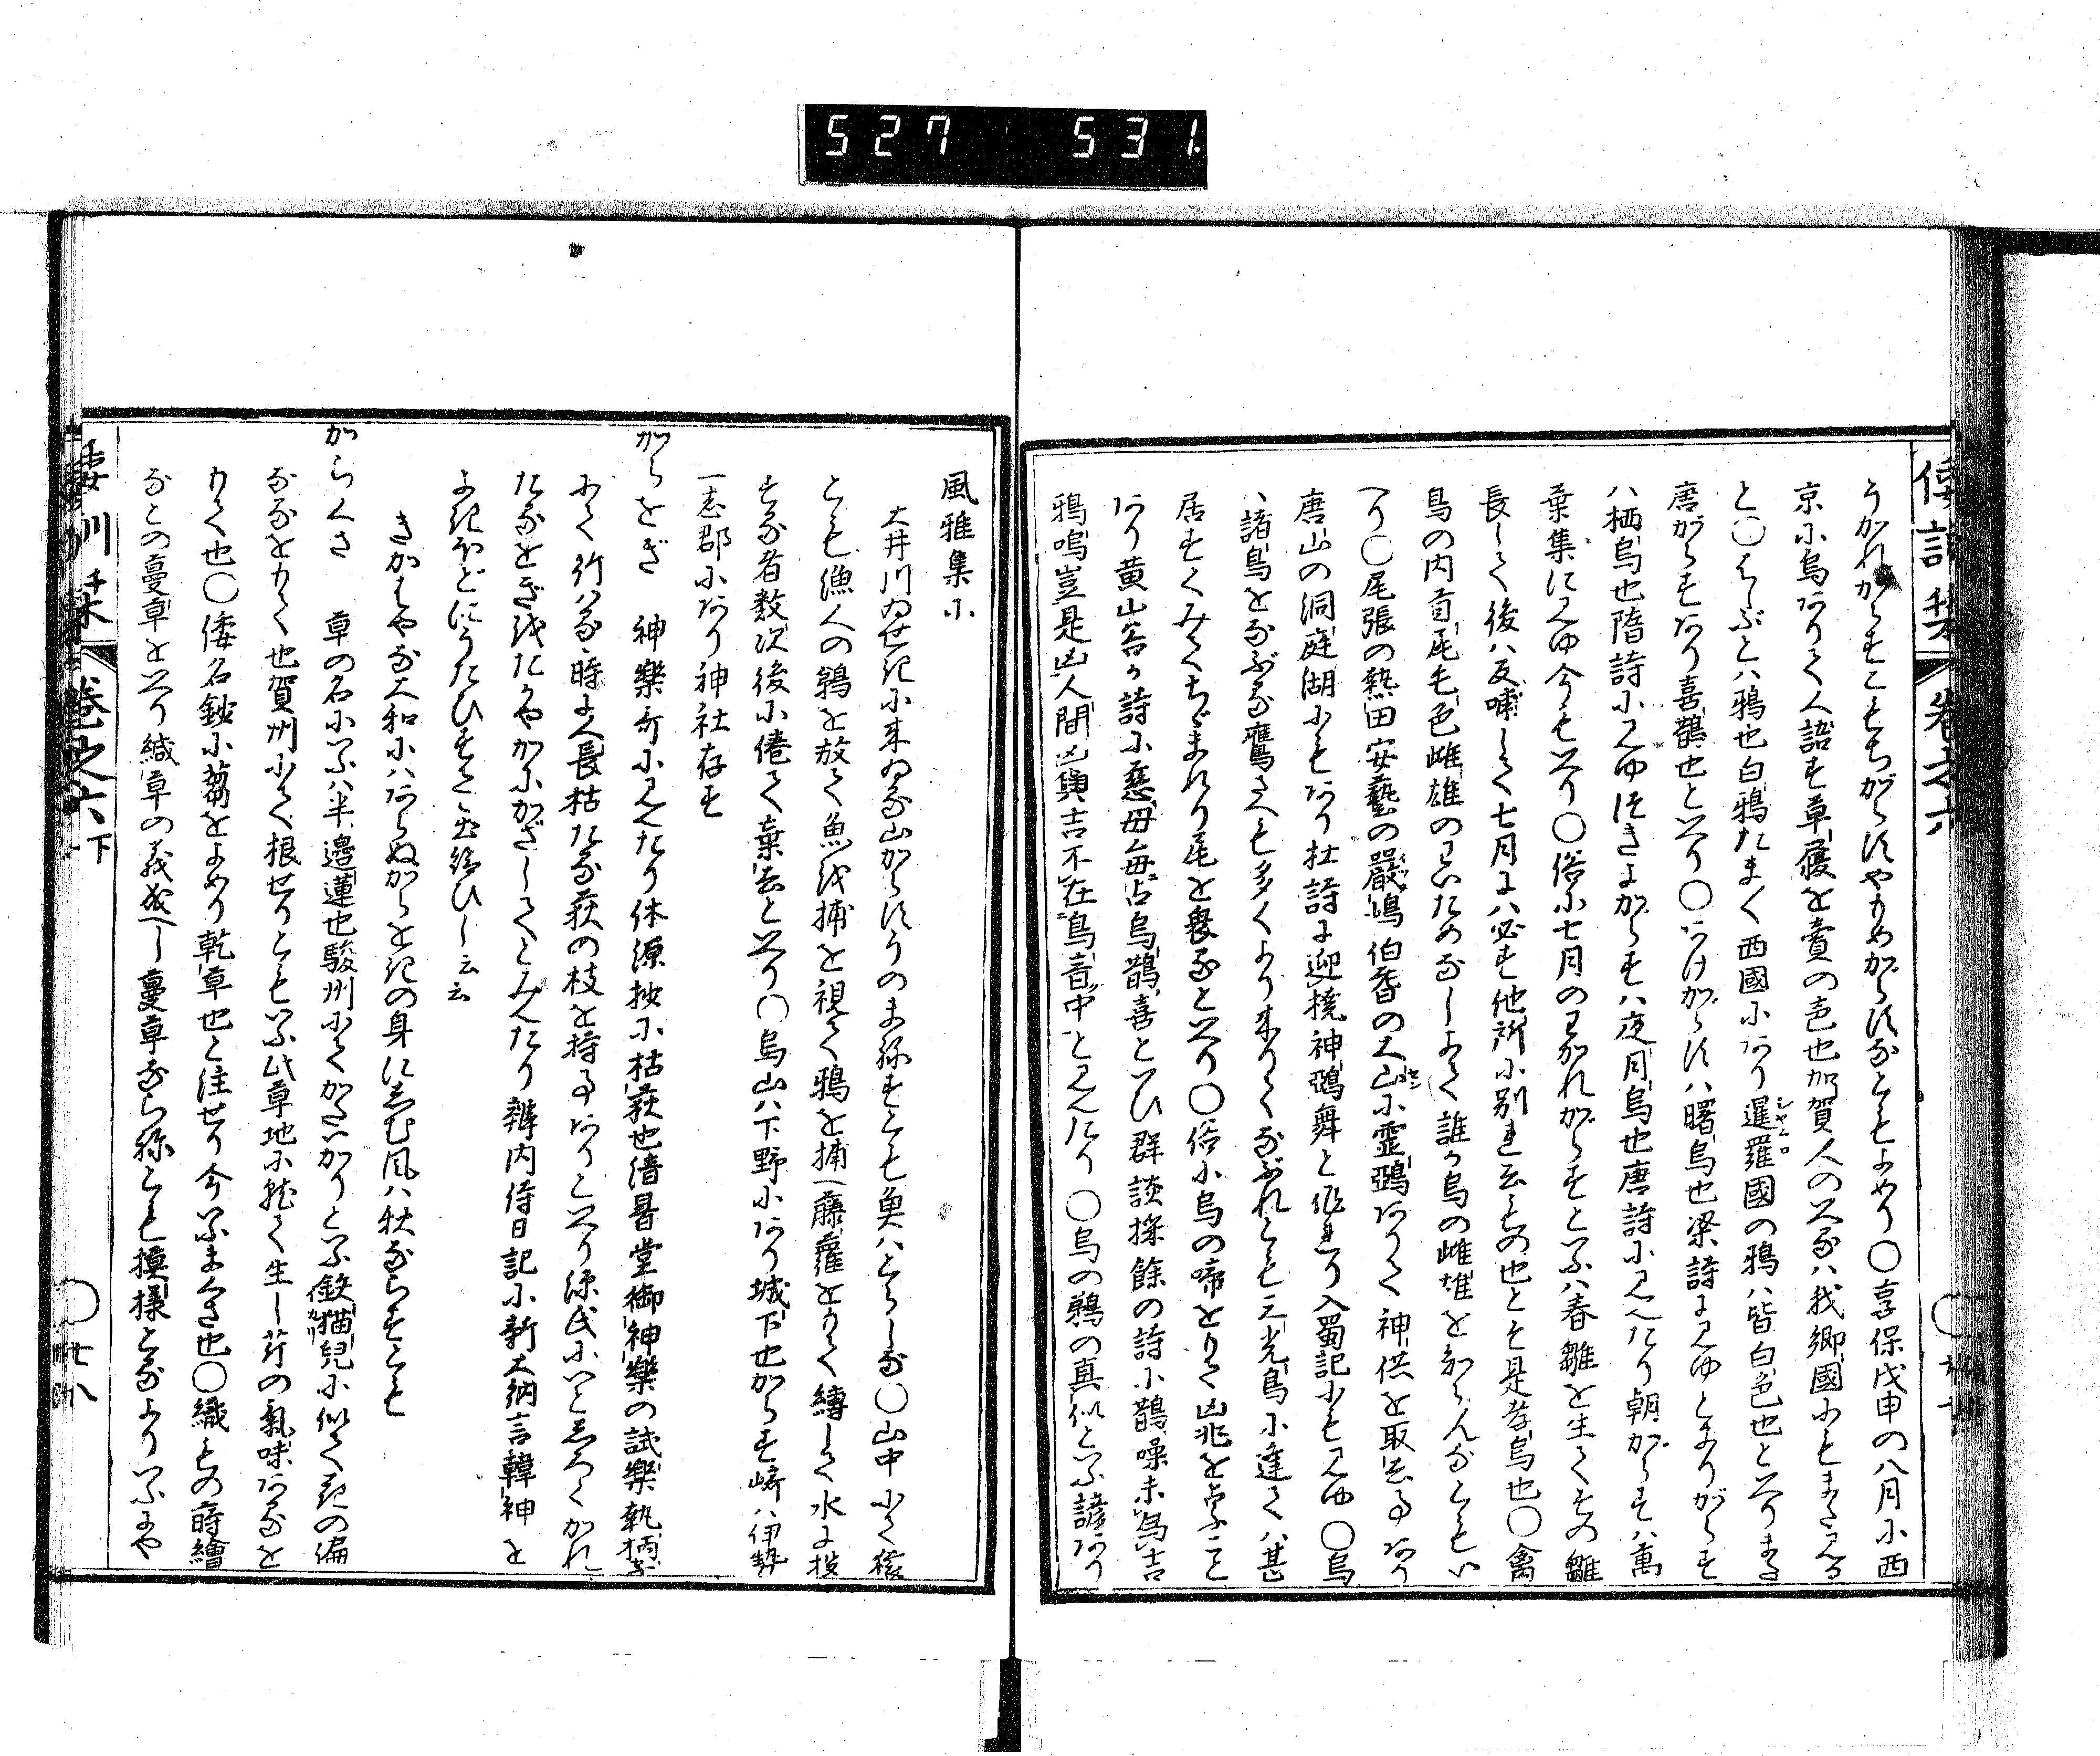 527 531.
うかれからすこもちがらすやもめがらすなどもよめり〇享保戊申の八月に西
京に烏ありて人語す草履を賣の色也加賀人のいへるは我郷國にもまゝある
と〇はしぶとハ鴉也白鴉たまく西國にあり暹羅國の鴉ハ皆白色也といへり
唐がらすあり喜鵲也といへり〇あけがらすハ曙烏也梁詩に見ゆとまりがらす
ハ栖烏也隋詩に見ゆ月よがらすハ夜月烏也唐詩に見えたり朝がらすハ萬
葉集に見ゆ今もいへり〇俗に七月のわかれがらすといふハ春雛を生てその雛
長して後ハ反哺して七月にハ必す他所に別れ去もの也とそ是孝烏也〇禽
鳥の内首尾毛色雌雄のわいためなしよて誰か烏の雌雄をしらんなともい
へり〇尾張の熱田安藝の嚴嶋伯耆の大山に靈鵶ありて神供を取去事あり
唐山の洞庭湖にもあり杜詩に迎擁神鵶舞と作れり入蜀記にも見ゆ〇烏
ハ諸鳥をなぶる鷹さへも多くより来りてなぶれとも三光鳥に逢てハ甚
居すくみてちゞまれり尾を畏るといへり〇俗に烏の啼をもて凶兆を占ふこと
あり黄山谷か詩に慈母毎占烏鵲喜といひ群談採餘の詩に鵲噪未爲吉
鴉鳴豈是凶人間凶與吉不在鳥音中と見えたり〇烏の鵜の真似といふ諺あり
風雅集に
大井川ゐせきに来ゐる山がらすうのまねすとも魚ハとらじな〇山中にて猿
とも漁人の鵜を放て魚を捕を視て鴉を捕へ藤蘿をもて縛して水に投
する者数次後に倦て棄去といへり〇烏山ハ下野にあり城下也からす崎ハ伊勢
一志郡にあり神社存す
からをぎ 神樂哥に見えたり体源抄に枯荻也清暑堂御神樂の試樂執柄家
にて行ハる時に人長枯たる荻の枝を持事ありといへり源氏にいとしろくかれ
たるをぎをたかやかにかざしてとみえたり辨内侍日記に新大納言韓神を
よきほどにうたひすてゝ立給ひし云云
きかはやな大和にハあらぬからをきの身にしむ風ハ秋ならすとも
からくさ 草の名にいふハ半邊蓮也駿州にてかたいかりといふ鉄猫兒に似て花の偏
なるをもて也賀州にて根せりともいふ此草地に就て生し芹の氣味あるを
もて也〇倭名鈔に蒭をよめり乾草也と注せり今いふまくさ也〇織もの蒔繪
なとの蔓草をいへり緘草の義成へし蔓草ならねとも摸様となるよりいふにや
倭訓栞 巻之六下 〇廿八